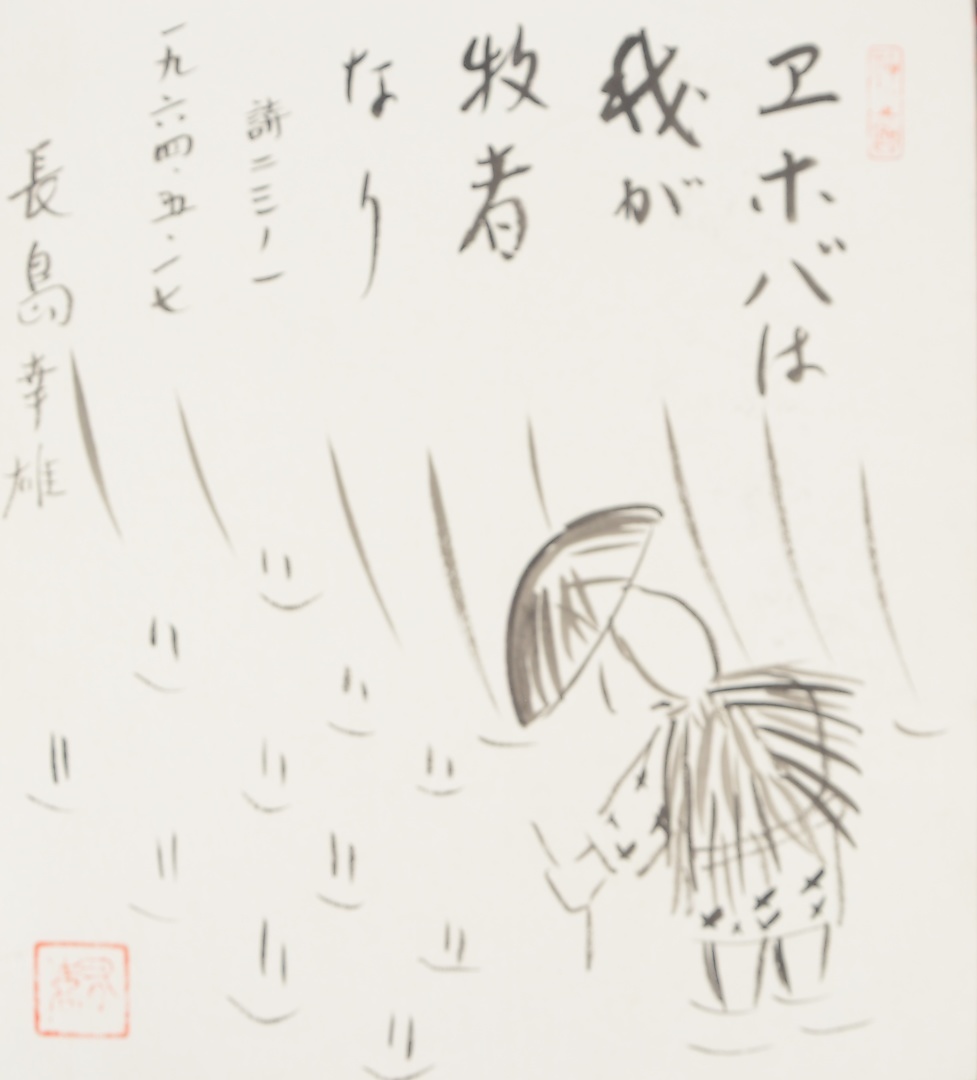 ヱホバは
我が
牧者
なり
詩二三ノ一
一九六四・五・一七
長島幸雄